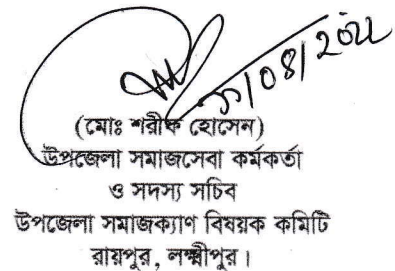 /08/2022
(মোঃ শরীফ হোসেন)
উপজেলা সমাজসেবা কর্মকর্তা
ও সদস্য সচিব
উপজেলা সমাজক্যাণ বিষয়ক কমিটি
রায়পুর, লক্ষ্মীপুর।